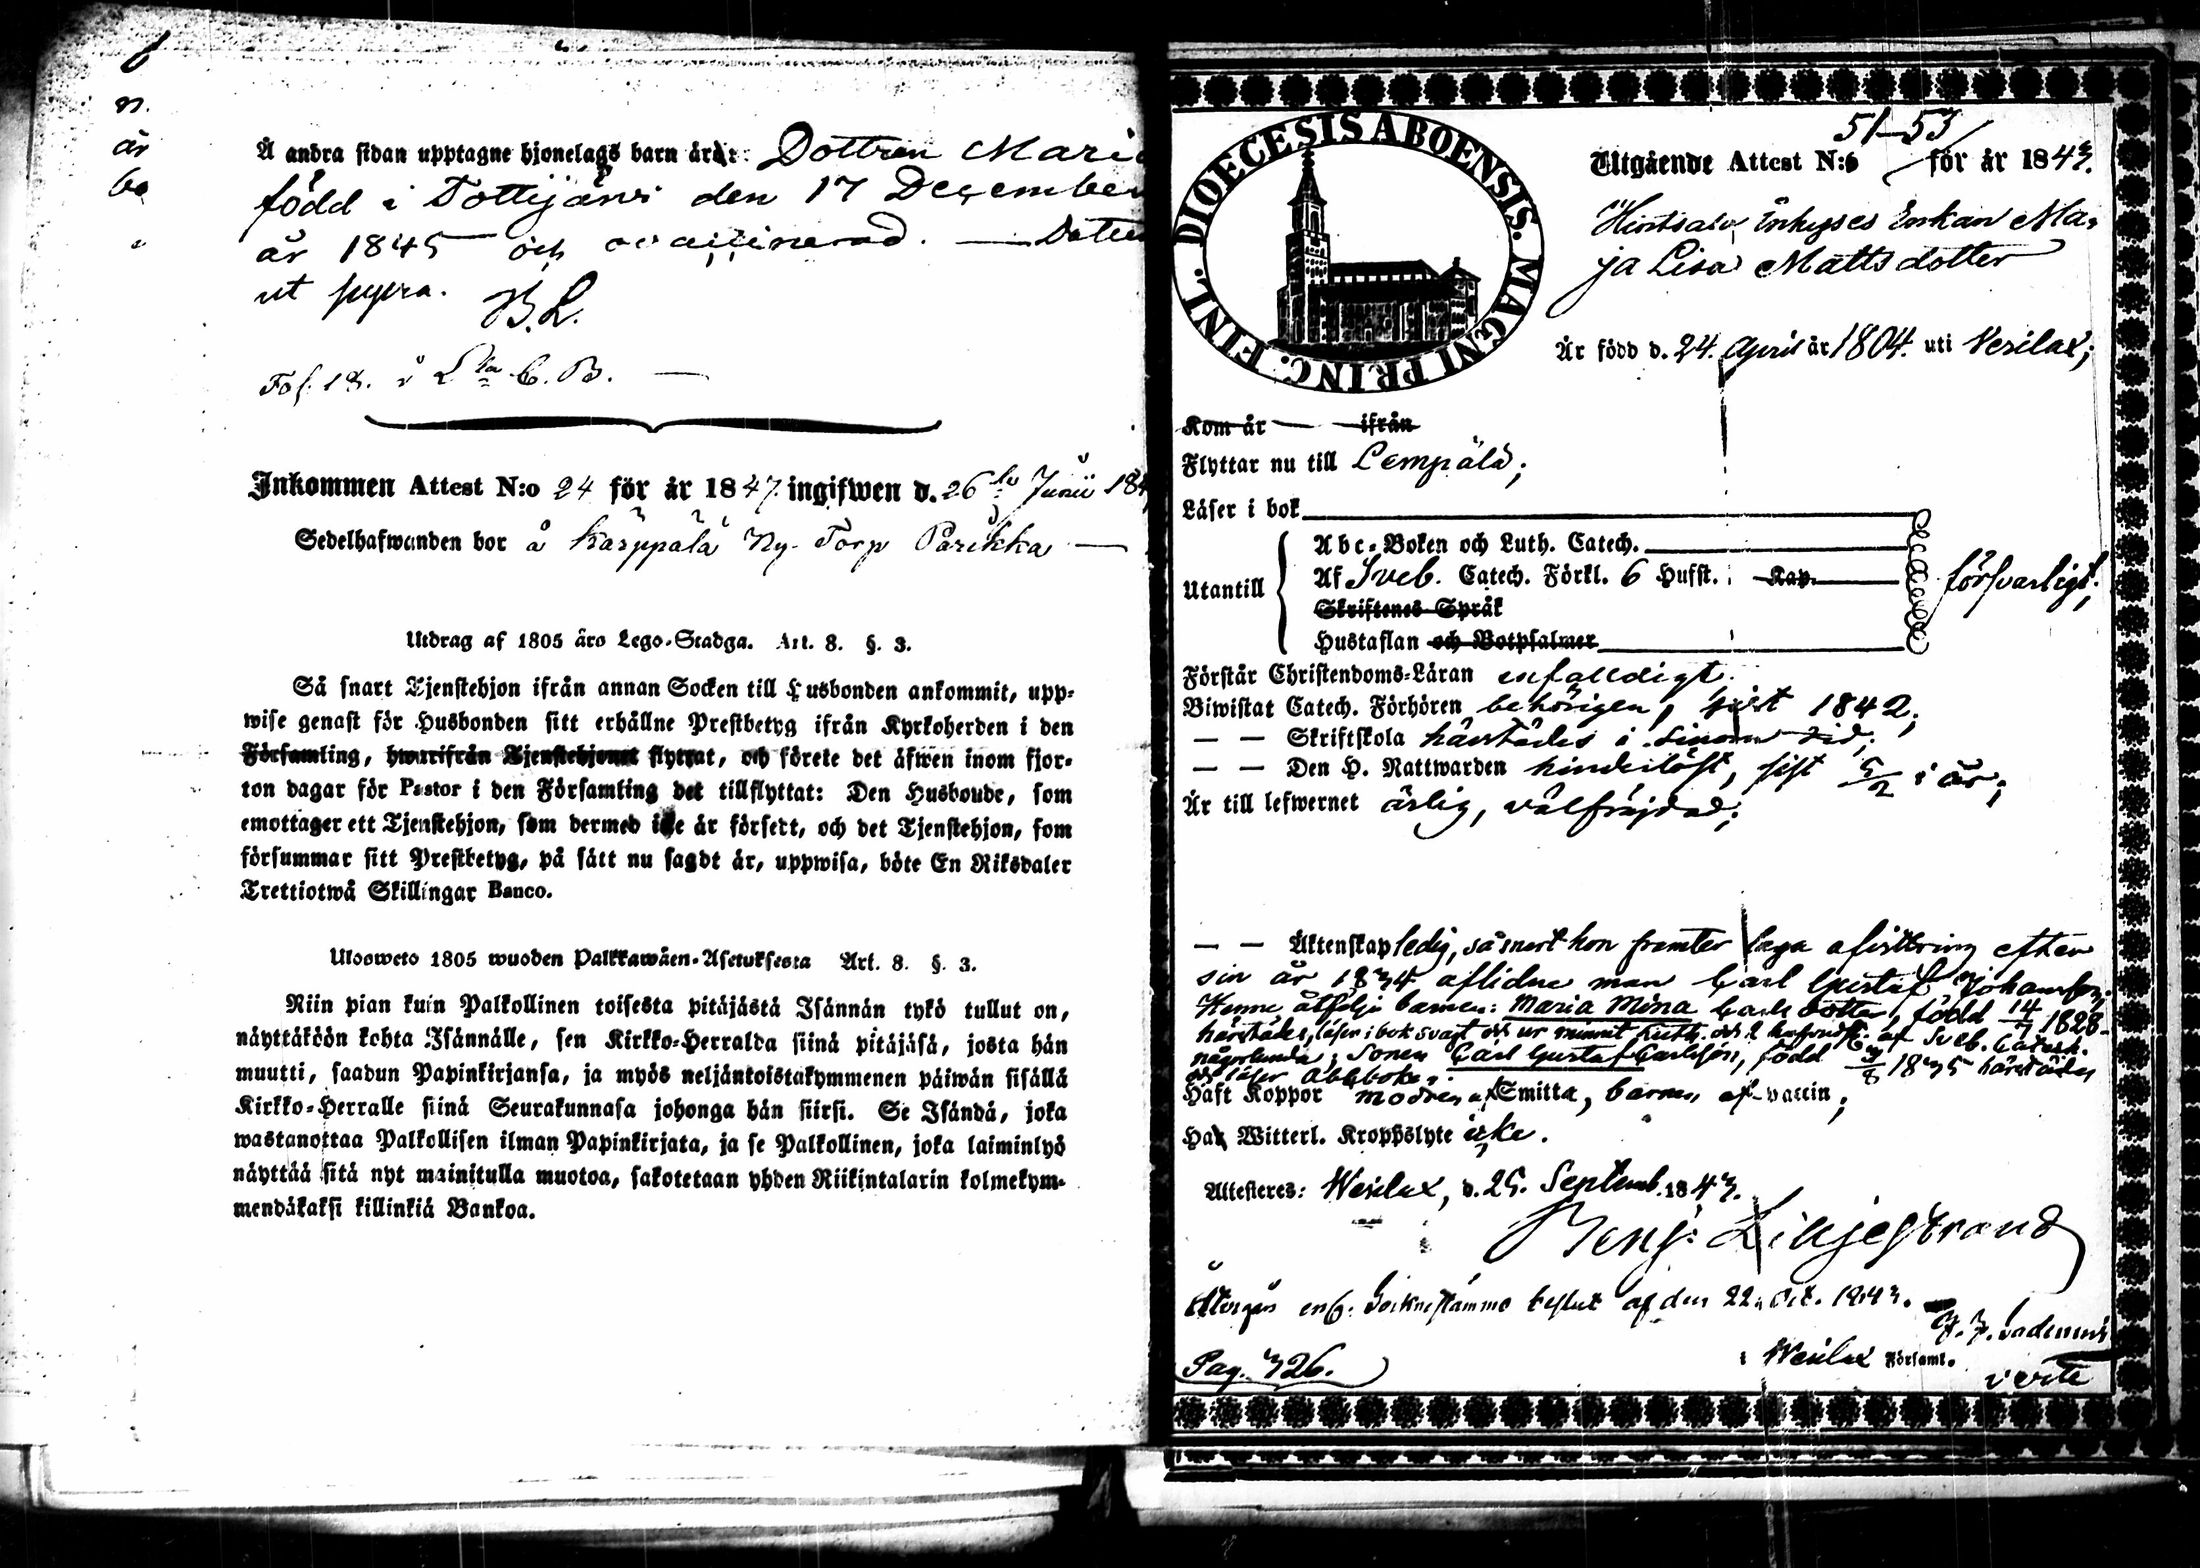 Å andra sidan upptagne hjonelags barn är: Dottren Maria
född i Tottijärvi den 17 December
år 1845 och vaccinerad. — Datum
ut supra. B. L.
Fol. 18. i L:a C. B. —
Inkommen Attest N:o 24 för år 1847. ingifwen d. 26 Junii 184
Sedelhafwanden bor å Kärppälä Ny-Torp Parikka —
Utdrag af 1805 års Lego-Stadga. Art. 8. §. 3.
Så snart Tjenstehjon ifrån annan Socken till Husbonden ankommit, upp-
wise genast för Husbonden sitt erhållne Prestbetyg ifrån Kyrkoherden i den
Församling, hwarifrån Tjenstehjonet flyttat, och förete det äfwen inom fjor-
ton dagar för Pastor i den Församling det tillflyttat: Den Husbonde, som
emottager ett Tjenstehjon, som dermed icke är försedt, och det Tjenstehjon, som
försummar sitt Prestbetyg, på sätt nu sagdt är, uppwisa, böte En Riksdaler
Trettiotwå Skillingar Banco.
Ulosweto 1805 wuoden Palkkawäen-Asetuksesta Art. 8. §. 3.
Niin pian kuin Palkollinen toisesta pitäjästä Isännän tykö tullut on,
näyttäköön kohta Isännälle, sen Kirkko-Herralda siinä pitäjäsä, josta hän
muutti, saadun Papinkirjansa, ja myös neljäntoistakymmenen päiwän sisällä
Kirkko-Herralle siinä Seurakunnasa johonga hän siirsi. Se Isändä, joka
wastanottaa Palkollisen ilman Papinkirjata, ja se Palkollinen, joka laiminlyö
näyttää sitä nyt mainitulla muotoa, sakotetaan yhden Riikintalarin kolmekym-
mendäkaksi killinkiä Bankoa.
DIOECESIS ABOENSIS. MAGNI PRINC. FINL.
51–53
Utgående Attest N:o för år 1843.
Hintsala Inhyses Enkan Ma-
ja Lisa Mattsdotter
Är född d. 24. April år 1804. uti Vesilax;
Kom år — ifrån
Flyttar nu till Lempälä;
Läser i bok
Utantill
Abc-Boken och Luth. Catech.
Af Sveb. Catech. Förkl. 6 Hufst. Kap.
Skriftenes Språk
Hustaflan och Botpsalmer
försvarligt;
Förstår Christendoms-Läran enfalldigt.
Biwistat Catech. Förhören behörigen, sist 1842;
— — Skriftskola härstädes i sinom tid;
— — Den H. Nattwarden hinderlöst, sist 5/2 i år;
Är till lefwernet ärlig, välfräjdad;
— — Äktenskap ledig, så snart hon framter laga afvittring efter
sin år 1834 aflidne man Carl Gustaf Johansson;
Henne åtfölja barnen: Maria Mina Carlsdotter, född 14/7 1828
härstädes, läser i bok svagt och ur minnet Luth. och 2 hufvudst. af Sveb. Catech.
någorlunda; Sonen Carl Gustaf Carlsson, född 3/8 1835 härstädes
och läser abcboken;
Haft Koppor modren af Smitta, barnen af vaccin;
Har Witterl. Kroppslyte icke.
Attesteres: Wesilax, d. 25. Septemb. 1843.
Benj. Liljestrand
Återgår enl. Socknestämmo beslut af den 22. Oct. 1843.
i Wesilax Församl.
Pag. 326.
verte